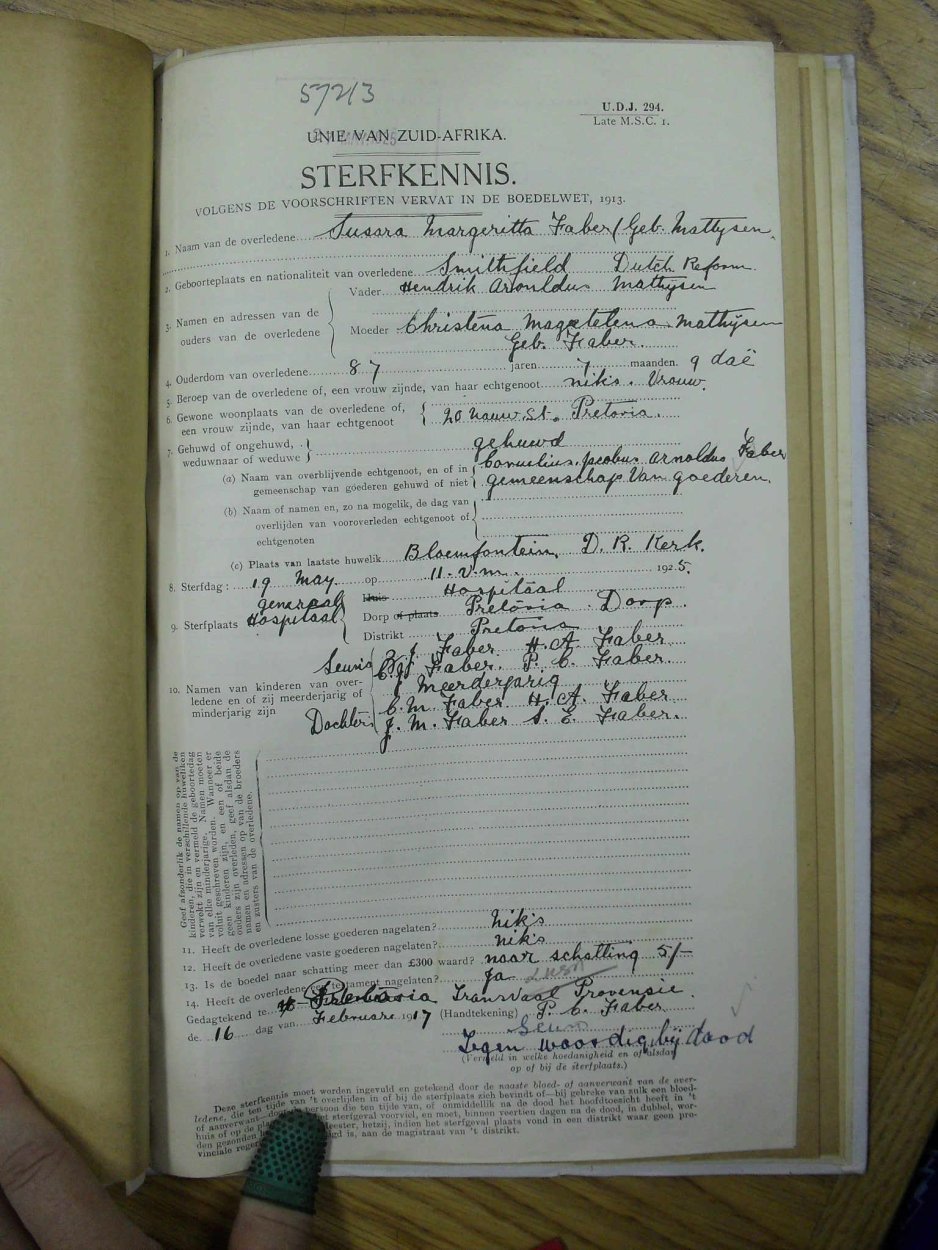 57213
U.D.J. 294.
Late M.S.C. 1.
UNIE VAN ZUID-AFRIKA.
STERFKENNIS.
VOLGENS DE VOORSCHRIFTEN VERVAT IN DE BOEDELWET, 1913.
1. Naam van de overledene Susara Margeritta Faber / Geb. Mattysen.
2. Geboorteplaats en nationaliteit van overledene Smithfield Dutch Reform
3. Namen en adressen van de ouders van de overledene
Vader Hendrik Arnuldus Mathysen
Moeder Christena Magetelena Mathysen
Geb. Faber.
4. Ouderdom van overledene 87 jaren 7 maanden. 9 daë
5. Beroep van de overledene of, een vrouw zijnde, van haar echtgenoot niks. Vrouw.
6. Gewone woonplaats van de overledene of,
een vrouw zijnde, van haar echtgenoot
20 nauw St. Pretoria.
7. Gehuwd of ongehuwd,
weduwnaar of weduwe
gehuwd
(a) Naam van overblijvende echtgenoot, en of in
gemeenschap van goederen gehuwd of niet
Cornelius Jacobus Arnoldus Faber
gemeenschap Van goederen.
(b) Naam of namen en, zo na mogelik, de dag van
overlijden van vooroverleden echtgenoot of
echtgenoten
(c) Plaats van laatste huwelik Bloemfontein, D. R. Kerk.
8. Sterfdag: 19 May op 11. v.m. 1925.
9. Sterfplaats
generaal
Hospitaal
Huis Hospitaal
Dorp of plaats Pretoria Dorp.
Distrikt Pretoria
10. Namen van kinderen van over-
ledene en of zij meerderjarig of
minderjarig zijn
Seuns
Faber H. A. Faber
Faber. P. C. Faber.
Meerderjarig
Dochters
C. M. Faber H. A. Faber
J. M. Faber S. E. Faber.
Geef afzonderlik de namen op van de
kinderen, die in verschillende huweliken
verwekt zijn en vermeld de geboortedag
van elke minderjarige. Namen moeten
voluit geschreven worden. Wanneer er
geen kinderen zijn, en een of beide
ouders zijn overleden, geef alsdan de
namen en adressen op van de broeders
en zusters van de overledene.
11. Heeft de overledene losse goederen nagelaten? Niks
12. Heeft de overledene vaste goederen nagelaten? niks
13. Is de boedel naar schatting meer dan £300 waard? naar schatting 5/-
14. Heeft de overledene een testament nagelaten? Ja
Gedagtekend te Pretoria Transvaal Provensie
de. 16 dag van Februarie 1917 (Handtekening) P. C. Faber
Seun
Tegen woordig bij dood
(Vermeld in welke hoedanigheid en of alsdan
op of bij de sterfplaats.)
Deze sterfkennis moet worden ingevuld en getekend door de naaste bloed- of aanverwant van de over-
ledene, die ten tijde van 't overlijden in of bij de sterfplaats zich bevindt of—bij gebreke van zulk een bloed-
of aanverwant—door persoon die ten tijde van, of onmiddellik na de dood het hoofdtoezicht heeft in 't
huis of op de sterfgeval voorviel, en moet, binnen veertien dagen na de dood, in dubbel, wor-
den gezonden meester, hetzij, indien het sterfgeval plaats vond in een distrikt waar geen pro-
vinciale is, aan de magistraat van 't distrikt.